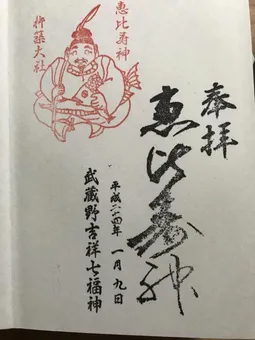 奉拝
恵比寿神
平成二十四年 一月九日
武蔵野吉祥七福神
恵比寿神
杵築大社